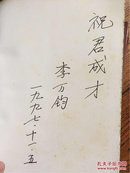 祝君成才
李万钧
一九九七·十一·五